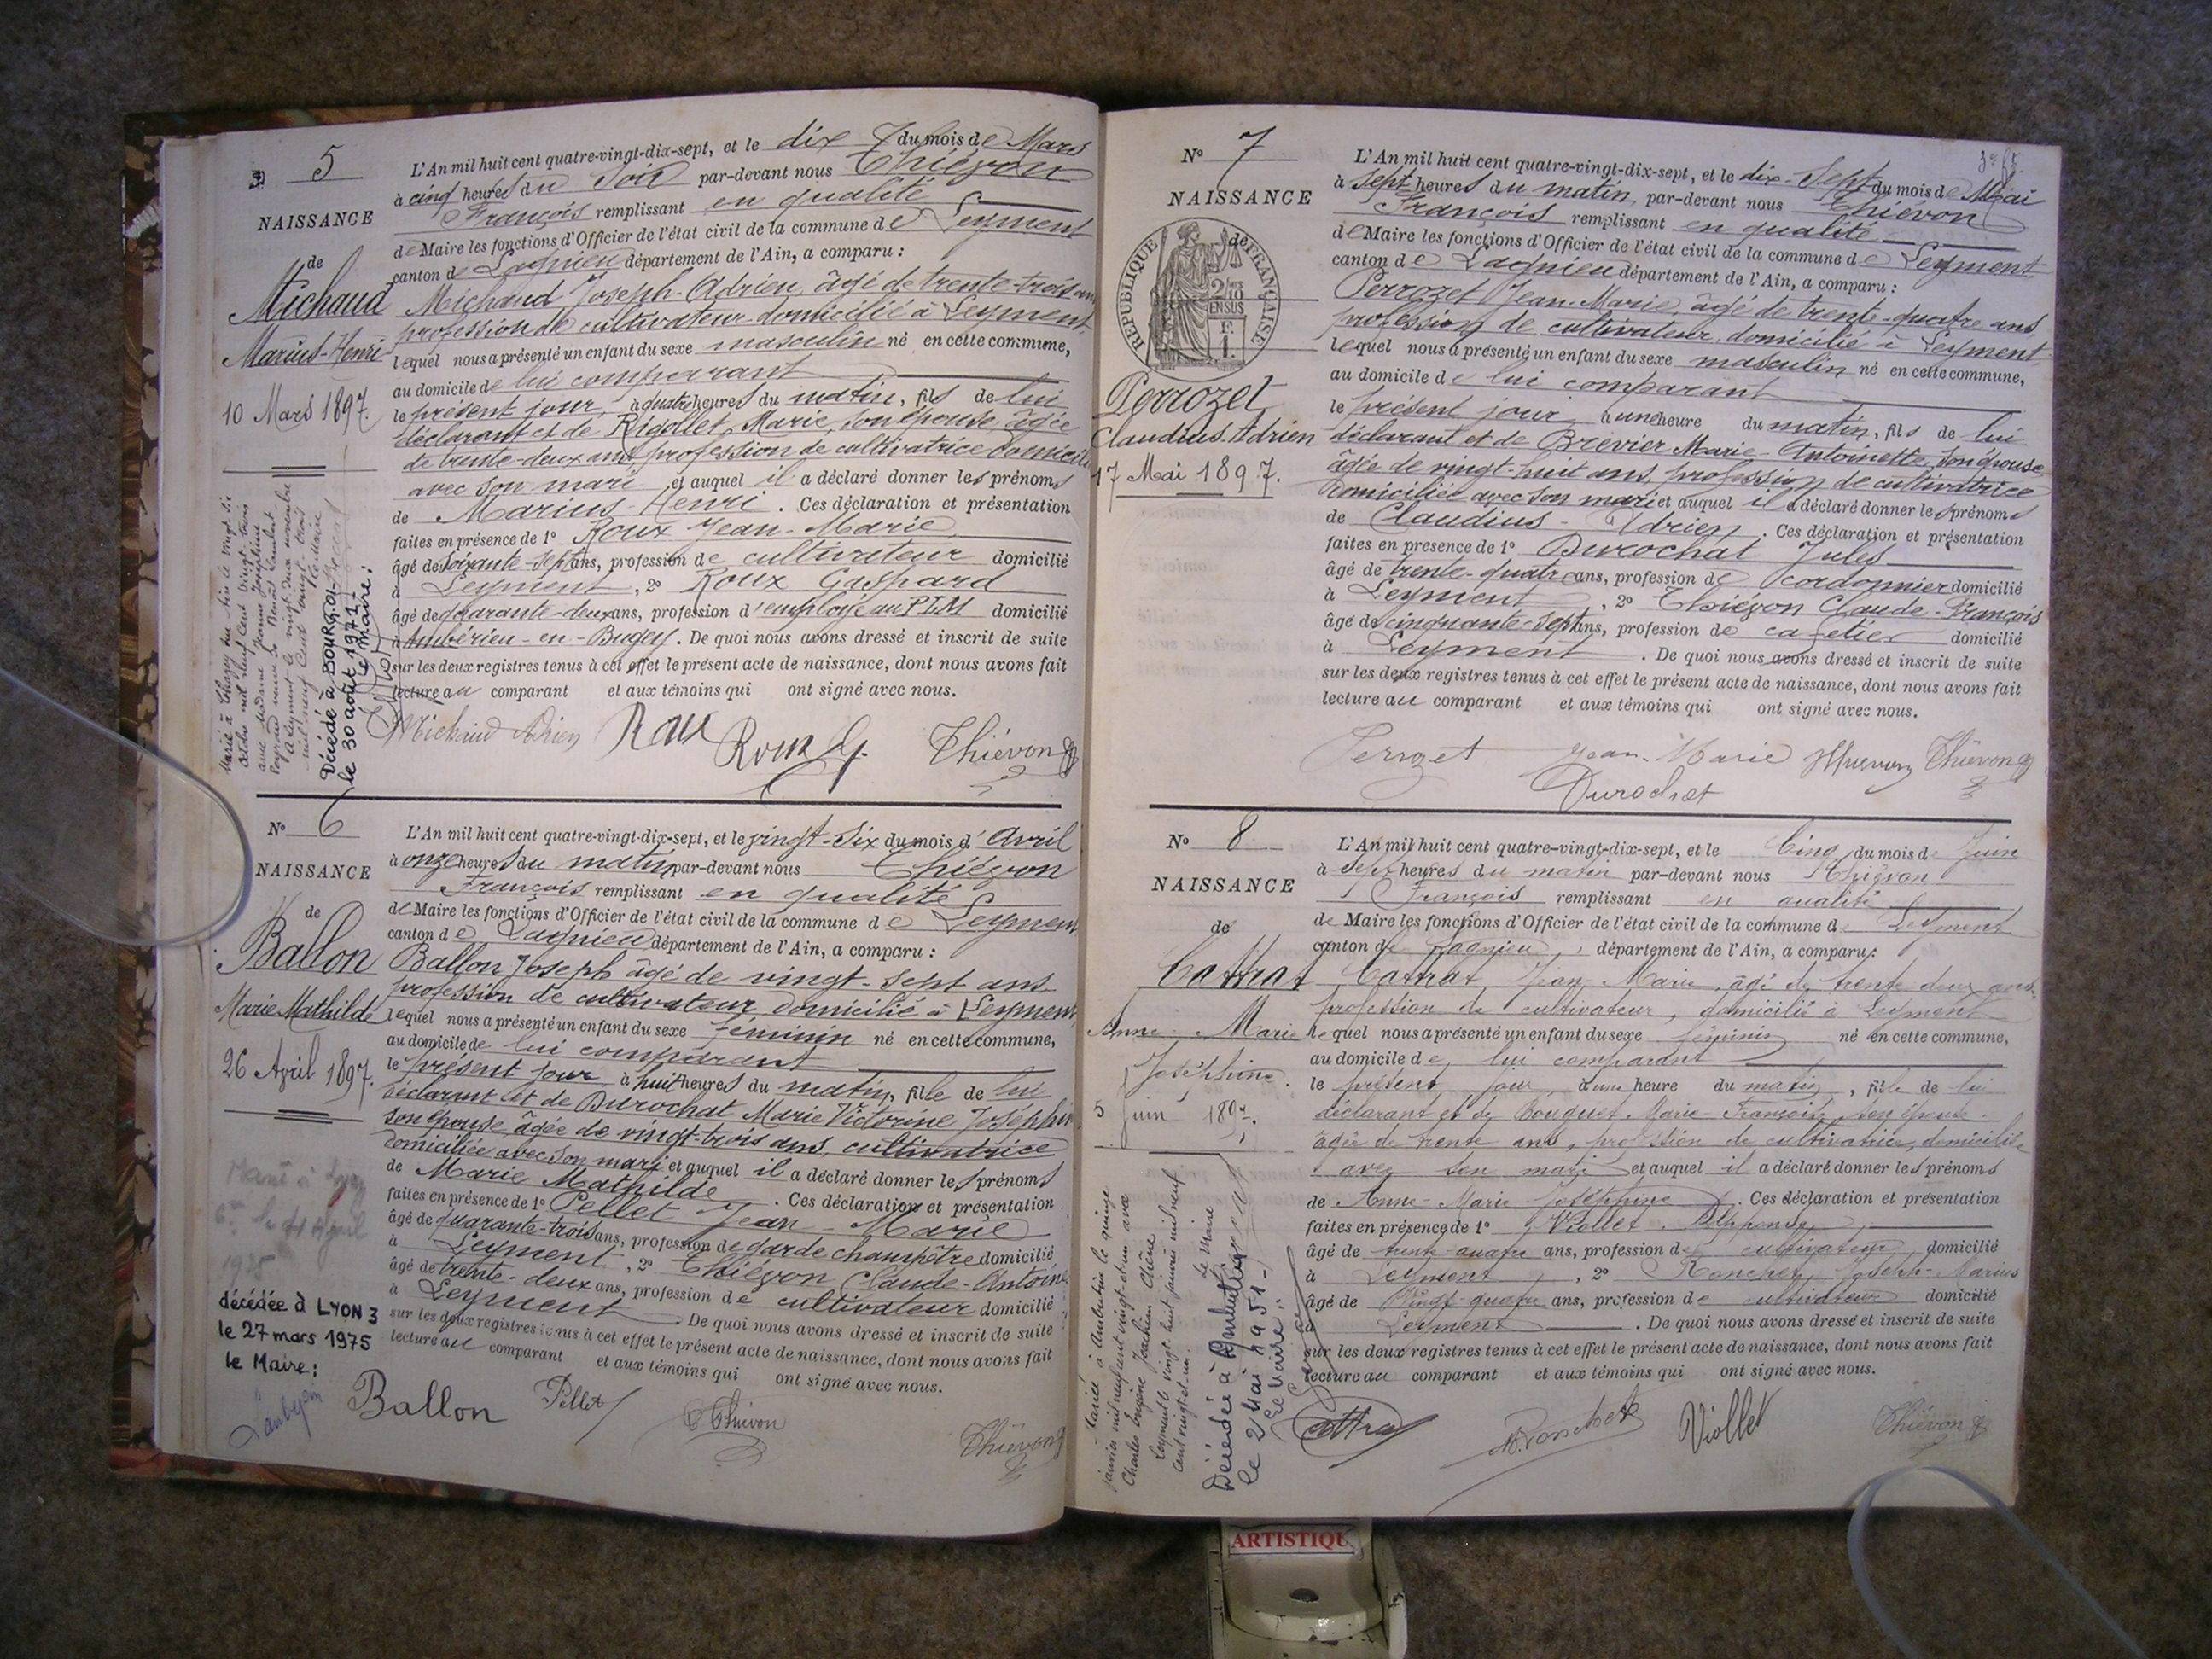 5
NAISSANCE
de
Michaud
Marius-Henri
10 Mars 1897.
L'An mil huit cent quatre-vingt-dix-sept, et le dix du mois de Mars
à cinq heures du soir par-devant nous Thiévon
François remplissant en qualité
de Maire les fonctions d'Officier de l'état civil de la commune de Leyment
canton de Lagnieu département de l'Ain, a comparu :
Michaud Joseph-Adrien, âgé de trente-trois ans
profession de cultivateur domicilié à Leyment
lequel nous a présenté un enfant du sexe masculin né en cette commune,
au domicile de lui comparant
le présent jour, à quatre heures du matin, fils de lui
déclarant et de Rigollet Marie, son épouse âgée
de trente-deux ans profession de cultivatrice
avec son mari et auquel il a déclaré donner les prénoms
de Marius-Henri. Ces déclaration et présentation
faites en présence de 1° Roux Jean-Marie
âgé de soixante-sept ans, profession de cultivateur domicilié
à Leyment, 2° Roux Gaspard
âgé de quarante-deux ans, profession d'employé au PLM domicilié
à Ambérieu-en-Bugey. De quoi nous avons dressé et inscrit de suite
sur les deux registres tenus à cet effet le présent acte de naissance, dont nous avons fait
lecture au comparant et aux témoins qui ont signé avec nous.
Décédé à BOURG 01
le 30 août 1971
le maire :
Michaud Adrien Roux Roux G. Thiévon
N° 6
NAISSANCE
de
Ballon
Marie Mathilde
26 Avril 1897.
L'An mil huit cent quatre-vingt-dix-sept, et le vingt-six du mois d'Avril
à onze heures du matin par-devant nous Thiévon
François remplissant en qualité
de Maire les fonctions d'Officier de l'état civil de la commune de Leyment
canton de Lagnieu département de l'Ain, a comparu :
Ballon Joseph âgé de vingt-sept ans
profession de cultivateur domicilié à Leyment
lequel nous a présenté un enfant du sexe féminin né en cette commune,
au domicile de lui comparant
le présent jour à huit heures du matin, fille de lui
déclarant et de Durochat Marie Victorine Joséphin
son épouse âgée de vingt-trois ans, cultivatrice
domiciliée avec son mari et auquel il a déclaré donner les prénoms
de Marie Mathilde. Ces déclaration et présentation
faites en présence de 1° Pellet Jean-Marie
âgé de quarante-trois ans, profession de garde champêtre domicilié
à Leyment, 2° Thiévon Claude-Antoine
âgé de trente-deux ans, profession de cultivateur domicilié
à Leyment. De quoi nous avons dressé et inscrit de suite
sur les deux registres tenus à cet effet le présent acte de naissance, dont nous avons fait
lecture au comparant et aux témoins qui ont signé avec nous.
décédée à LYON 3
le 27 mars 1975
le Maire :
Ballon Pellet Thiévon Thiévon
N° 7
NAISSANCE
de
RÉPUBLIQUE FRANÇAISE
Perrozet
Claudius-Adrien
17 Mai 1897.
L'An mil huit cent quatre-vingt-dix-sept, et le dix-sept du mois de Mai
à sept heures du matin, par-devant nous Thiévon
François remplissant en qualité
de Maire les fonctions d'Officier de l'état civil de la commune de Leyment
canton de Lagnieu département de l'Ain, a comparu :
Perrozet Jean-Marie, âgé de trente-quatre ans
profession de cultivateur, domicilié à Leyment
lequel nous a présenté un enfant du sexe masculin né en cette commune,
au domicile de lui comparant
le présent jour à une heure du matin, fils de lui
déclarant et de Brevier Marie-Antoinette, son épouse
âgée de vingt-huit ans, profession de cultivatrice
domiciliée avec son mari et auquel il a déclaré donner les prénoms
de Claudius-Adrien. Ces déclaration et présentation
faites en présence de 1° Durochat Jules
âgé de trente-quatre ans, profession de cordonnier domicilié
à Leyment, 2° Thiévon Claude-François
âgé de cinquante-sept ans, profession de cafetier domicilié
à Leyment. De quoi nous avons dressé et inscrit de suite
sur les deux registres tenus à cet effet le présent acte de naissance, dont nous avons fait
lecture au comparant et aux témoins qui ont signé avec nous.
Perrozet Jean-Marie Thiévon Thiévon
Durochat
N° 8
NAISSANCE
de
Cattrat
Anne-Marie
Joséphine.
5 Juin 1897.
L'An mil huit cent quatre-vingt-dix-sept, et le Cinq du mois de Juin
à sept heures du matin par-devant nous Thiévon
François remplissant en qualité
de Maire les fonctions d'Officier de l'état civil de la commune de Leyment
canton de Lagnieu, département de l'Ain, a comparu :
Cattrat Jean Marie, âgé de trente deux ans.
profession de cultivateur, domicilié à Leyment
lequel nous a présenté un enfant du sexe féminin né en cette commune,
au domicile de lui comparant
le présent jour, à une heure du matin, fille de lui
déclarant et de Bouquet Marie-Françoise son épouse.
âgée de trente ans, profession de cultivatrice, domiciliée
avec son mari et auquel il a déclaré donner les prénoms
de Anne-Marie Joséphine. Ces déclaration et présentation
faites en présence de 1° Viollet Alphonse
âgé de trente-quatre ans, profession de cultivateur, domicilié
à Leyment, 2° Ronchet Joseph-Marius
âgé de vingt-quatre ans, profession de cultivateur domicilié
à Leyment. De quoi nous avons dressé et inscrit de suite
sur les deux registres tenus à cet effet le présent acte de naissance, dont nous avons fait
lecture au comparant et aux témoins qui ont signé avec nous.
le 2 Mai 1951
Le Maire :
Viollet Thiévon
ARTISTIQU